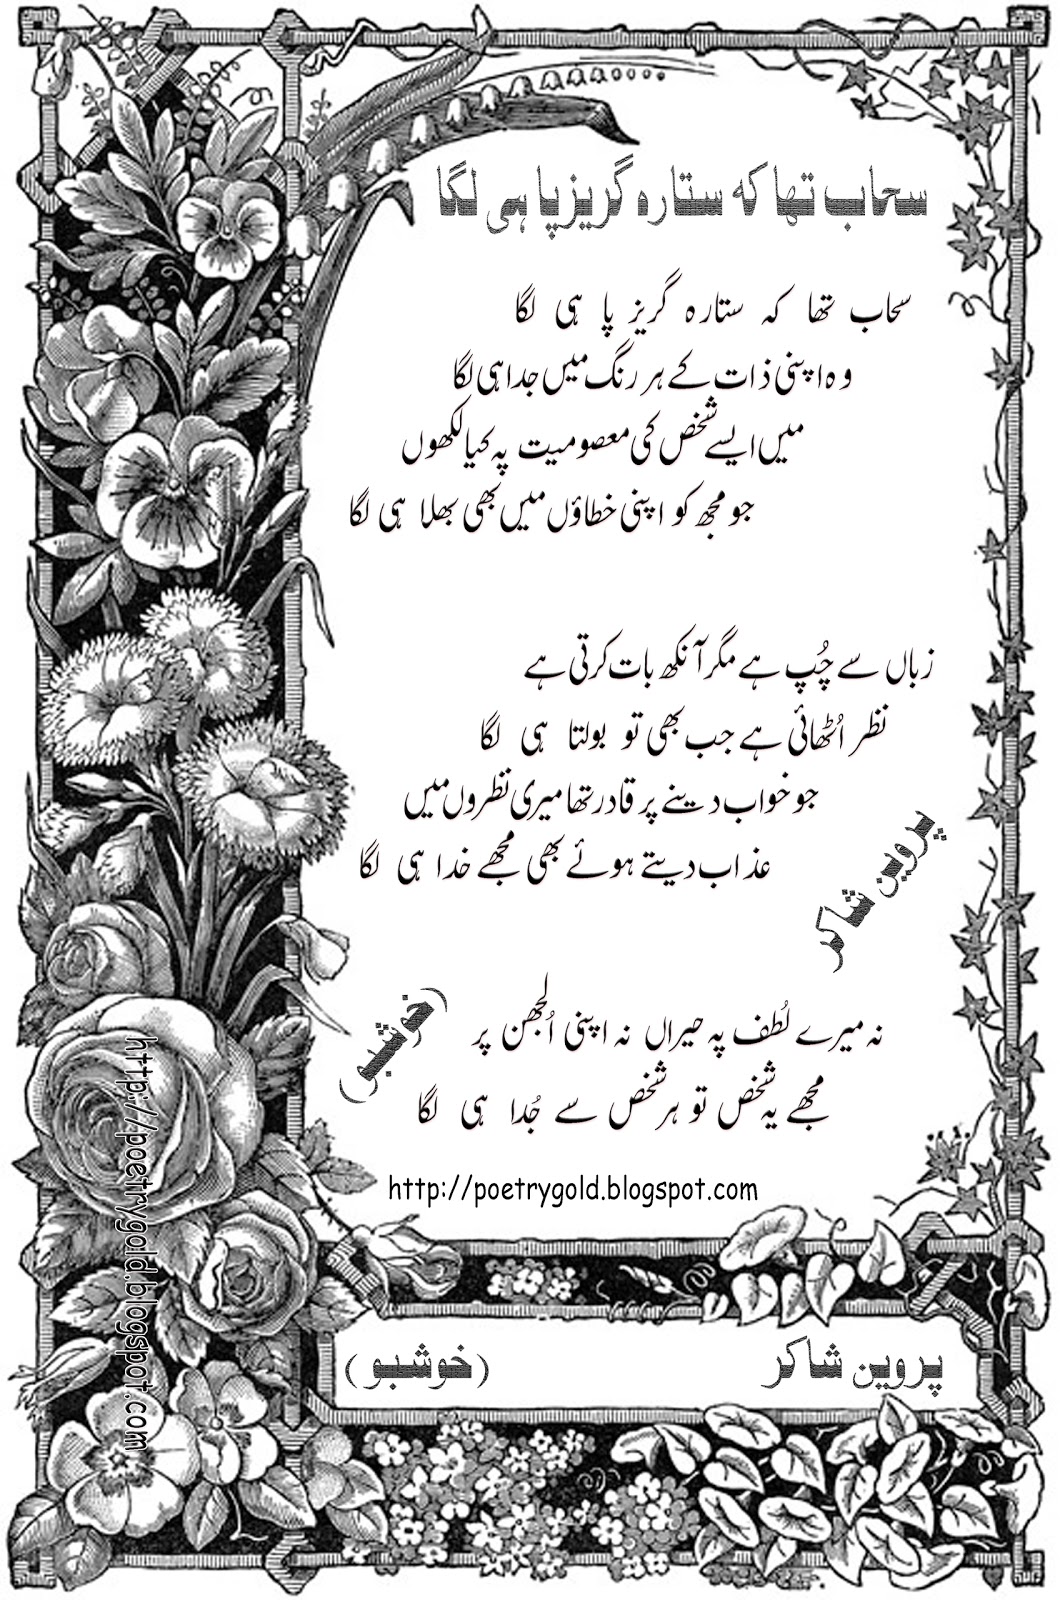 سحاب تھا کہ ستارہ گریزپا ہی لگا
سحاب تھا کہ ستارہ گریز پا ہی لگا
وہ اپنی ذات کے ہر رنگ میں جدا ہی لگا
میں ایسے شخص کی معصومیت پہ کیا لکھوں
جو مجھ کو اپنی خطاؤں میں بھی بھلا ہی لگا
زباں سے چُپ ہے مگر آنکھ بات کرتی ہے
نظر اُٹھائی ہے جب بھی تو بولتا ہی لگا
جو خواب دینے پر قادر تھا میری نظروں میں
عذاب دیتے ہوئے بھی مجھے خدا ہی لگا
پروین شاکر
نہ میرے لُطف پہ حیراں نہ اپنی اُلجھن پر
مجھے یہ شخص تو ہر شخص سے جُدا ہی لگا
(خوشبو)
http://poetrygold.blogspot.com
http://poetrygold.blogspot.com
پروین شاکر (خوشبو)